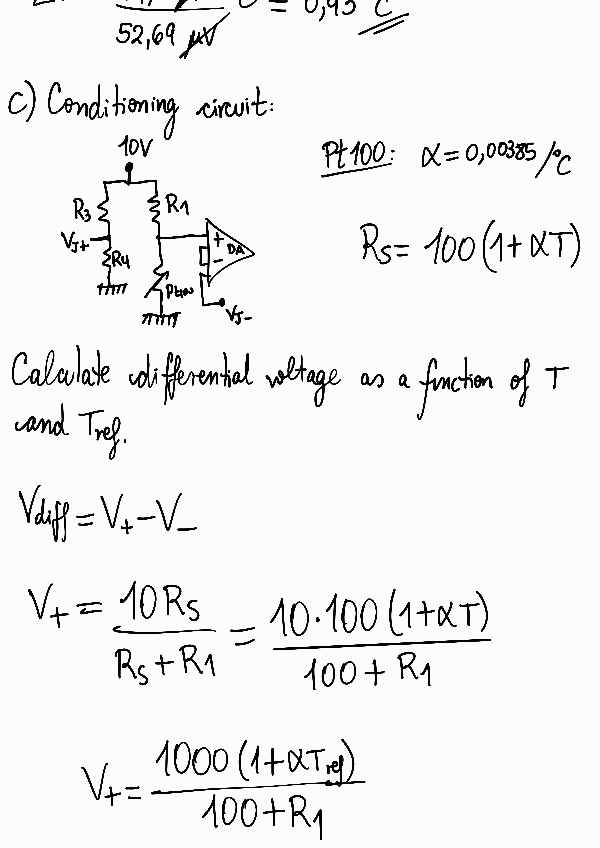 52,69 μV °C = 0,93 °C
c) Conditioning circuit:
10V
Pt100: α = 0,00385/°C
R3
R1
VJ+
DA
+
-
R4
Pt100
VJ-
Rs = 100(1+αT)
Calculate differential voltage as a function of T
and Tref.
Vdiff = V+ - V-
V+ = 10Rs / (Rs + R1) = 10·100(1+αT) / (100 + R1)
V+ = 1000(1+αTref) / (100+R1)